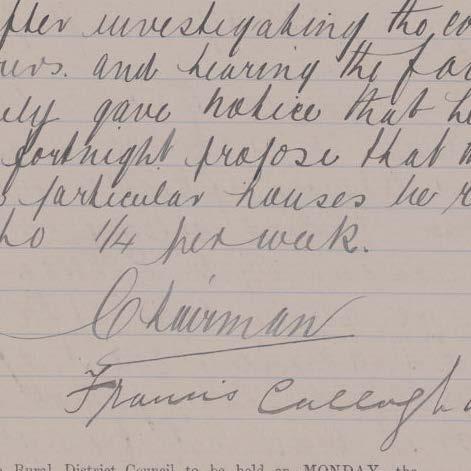 after investigating the co
urs. and hearing the fa
ely gave notice that he
fortnight propose that th
particular houses be r
to 1/4 per week.
Chairman
Francis Cullogh
Rural District Council to be held on MONDAY, the